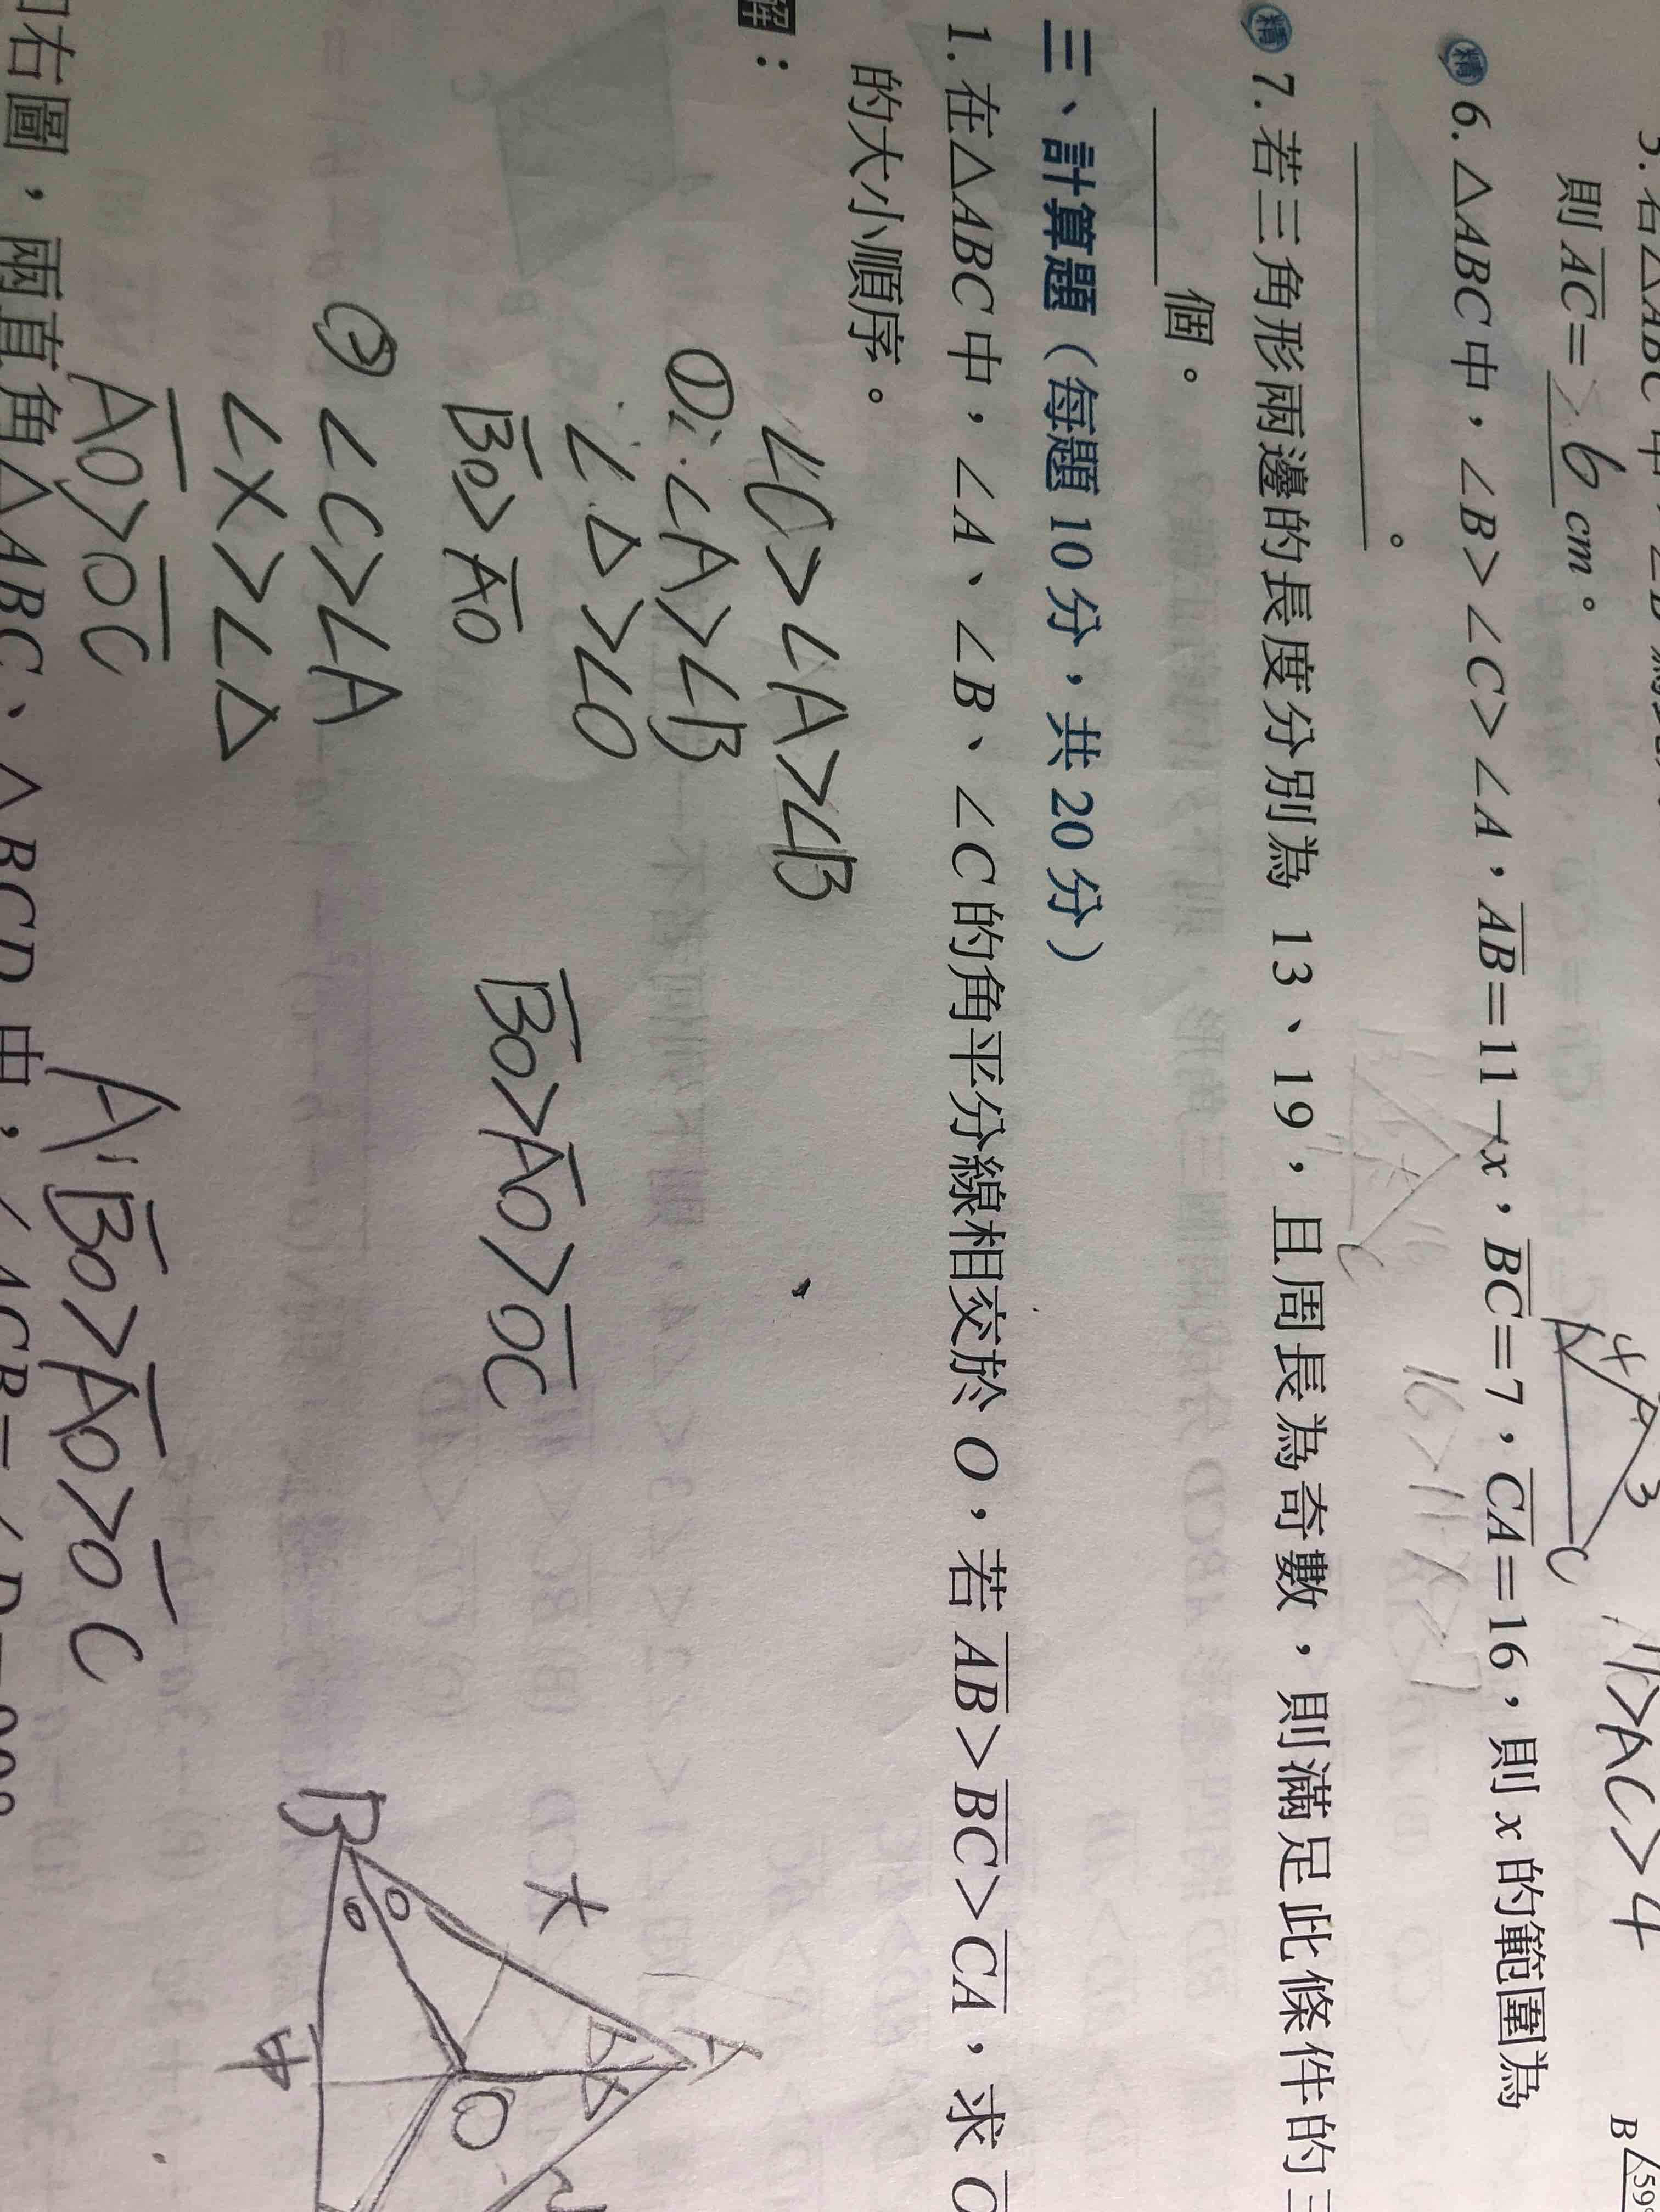 則AC=>6cm。
精 6. △ABC中，∠B>∠C>∠A，AB=11-x，BC=7，CA=16，則x的範圍為
。
精 7. 若三角形兩邊的長度分別為 13、19，且周長為奇數，則滿足此條件的三
個。
三、計算題（每題 10 分，共 20 分）
1. 在△ABC中，∠A、∠B、∠C的角平分線相交於 O，若 AB>BC>CA，求
的大小順序。
解：
∠C>∠A>∠B
①∵∠A>∠B
∴∠△>∠O
BO>AO
② ∠C>∠A
∠X>∠△
AO>OC
BO>AO>OC
A:BO>AO>OC
右圖，兩直角△ABC、△BCD中，
11>AC>4
4
A
3
C
16>11-x>7
B
59°
C
A
B
O
大
中